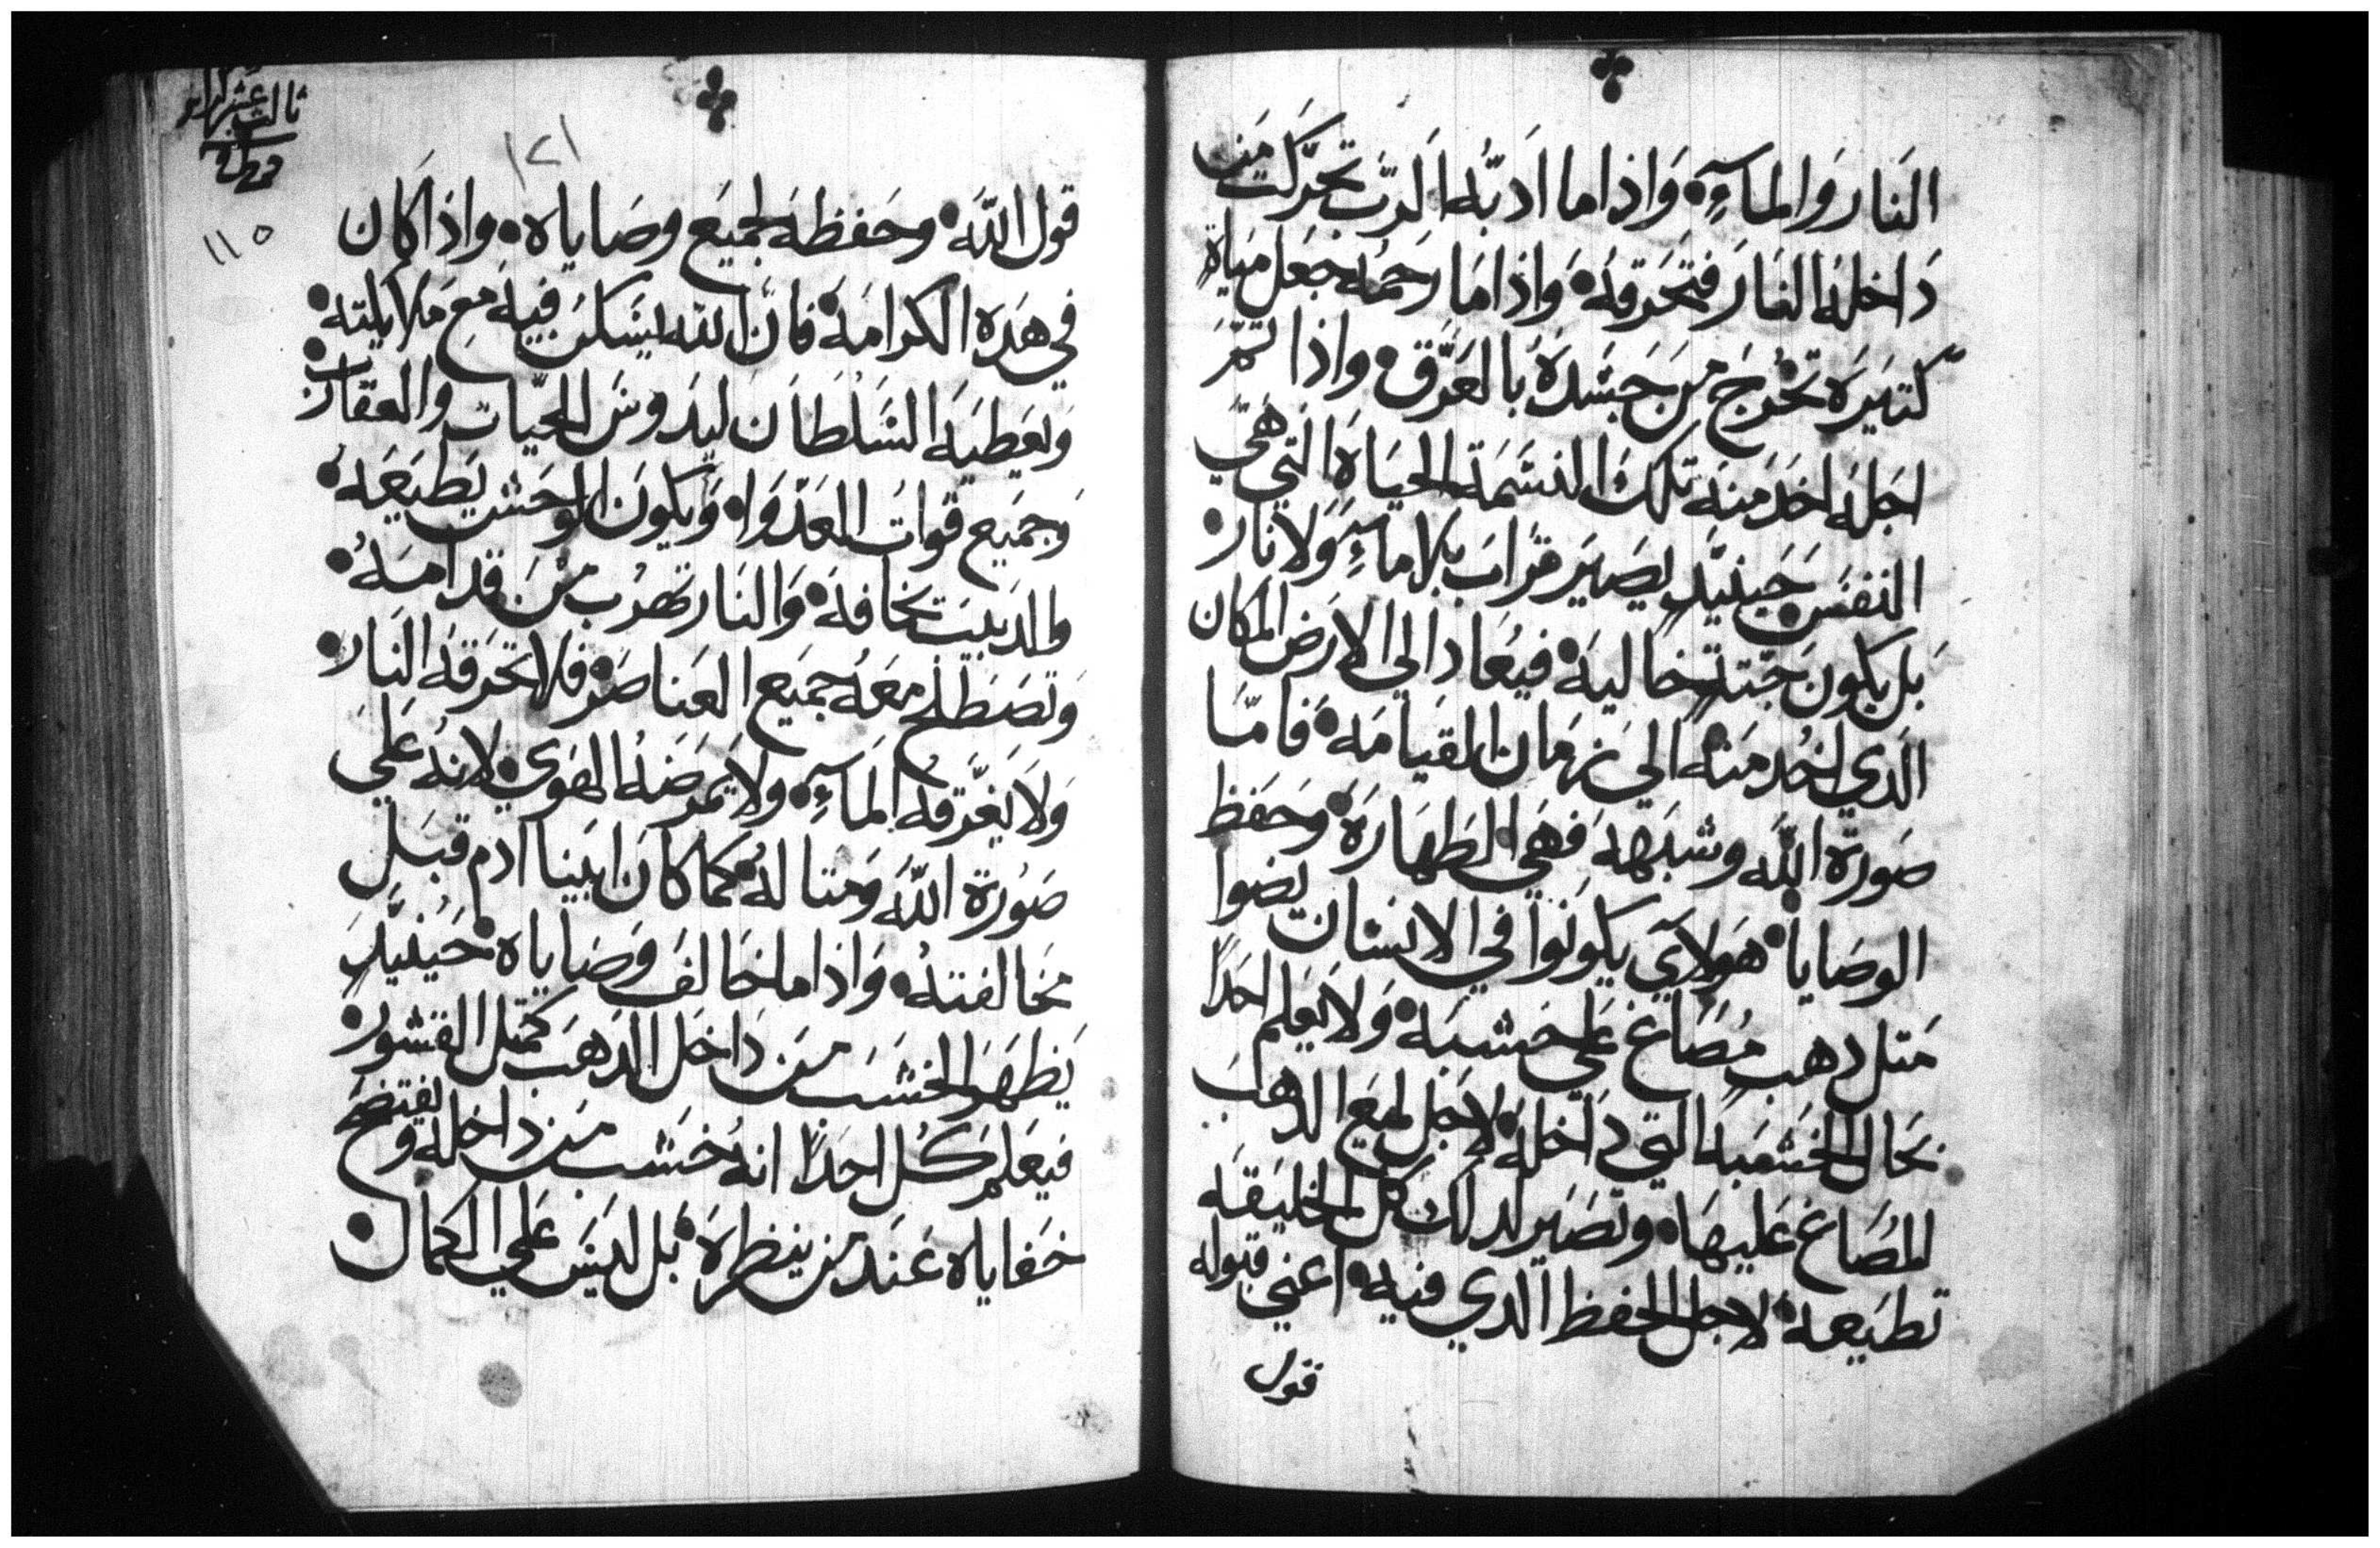 النَار وَالمآءِ۰ وَاذا ما ادبّه الرَب تحَرَّكت مَن
دَاخلهُ النَار فتحَرقهُ۰ وَاذا مَا رحمُه جعَل مَياة
كتيَره تخرُج مَن جَسَدهَ بالعَرَق۰ واذا تمَّ
اجَلهُ اخَد منهَ تلكَ النسَمَة الحيَاهَ التي هَي
النفسَ۰ حَينيَدٍ يصَير ترابَ بلا مآءٍ وَلا نَار۰
بَل يكونَ جَتةٍ خاليهَ۰ فيعُاد الي الارَض المكان
الَدي اخُد منهُ الي زمَان القيَامَهَ۰ فامّا
صَورة اللَّه وشبَههَ فهَي الطهَارَه۰ وحَفظ
الوصَايا۰ هَولاي يكونوا في الانسَان يضوا
مَتل دهب مُصَاغ علي خشبَه۰ وَلا يَعَلم احَدًا
بحَال الخشَبه التي دَاخلهَ۰ لاجَل لميَع الدهَب
المصُاغ عَليهَا۰ وتصَير لدلك كل الخليَقه
تطيَعهَ۰ لاجل الحفظ الدي فيه۰ اعني قبوله
قول
ثالث عشر
١٢١
١١٥
قول اللَّهَ۰ وحَفظهَ لجميَع وصَاياه۰ واذا كَان
في هَدَه الكرامَهَ۰ فانّ اللَّه يسَكنَ فيَه مَع ملايكته۰
وَيعَطيَه السَّلطَان ليدَوسَ الحيّات والعقارب۰
وَجميَع قوات العَدّواه وَيكونَ الوحَش يَطيَعَهُ۰
والدَبيَب تخافهَ۰ وَالنَار تهرُب مَنَ قدامَهُ۰
وَتصَطلحُ معَهُ جميَع العَناصَر۰ فلا تحَرقهُ النَار۰
وَلاَ يغَّرقهُ المآءِ۰ ولا يمَرضَهُ الهَوي۰ لانهُ عَليَ
صَورة اللَّهَ وَمتالهُ۰ كما كانَ ابَينا ادم قبَل
مخالفتهُ۰ وَاذا ما خَالفَ وَصَاياه۰ حَينيَدٍ
يَظهَر الخشَبَ مَن دَاخل الدَهَب كمتَل القشور۰
فيعَلمَ كُل احدًا انهُ خشَب مَن داخله ويفتضحَ
خَفاياه عَند من ينظرهَ۰ بَل ليَسَ عَلي الكمال